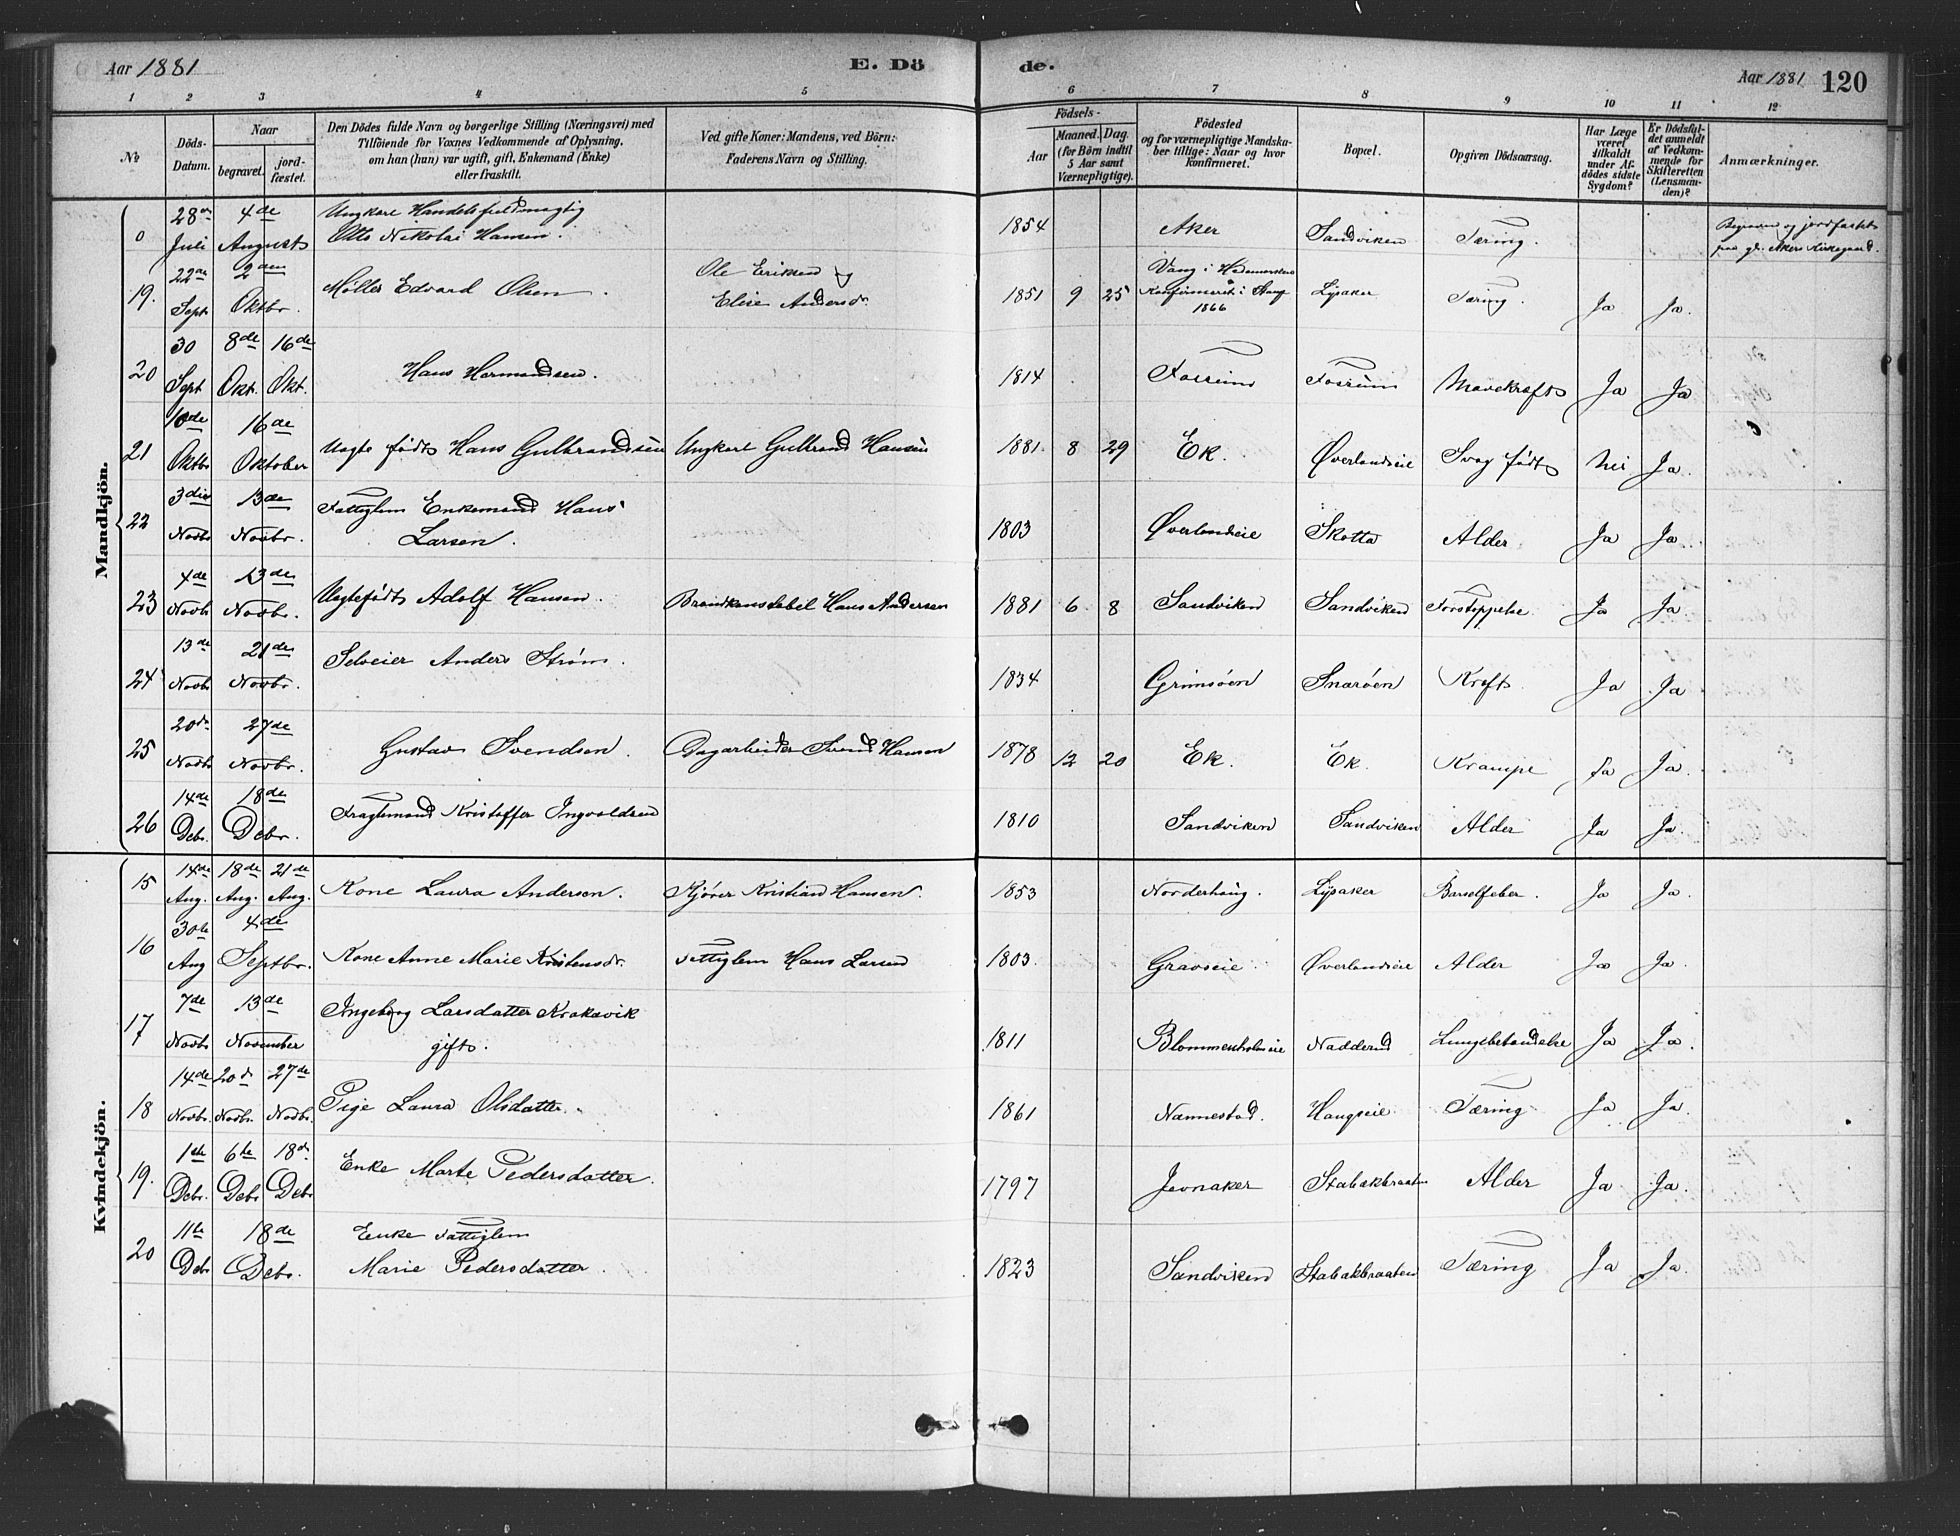 Aar 1881 E. Dö de. Aar 1881 120
1 2 3 4 5 6 7 8 9 10 11 12
No
Döds-Datum.
Naar
begravet.
jord-fæstet.
Den Dödes fulde Navn og borgerlige Stilling (Næringsvei) med
Tilföiende for Voxnes Vedkommende af Oplysning,
om han (hun) var ugift, gift, Enkemand (Enke)
eller fraskilt.
Ved gifte Koner: Mandens, ved Börn:
Faderens Navn og Stilling.
Födsels-
Aar
Maaned. Dag.
(for Börn indtil
5 Aar samt
Værnepligtige).
Födested
og for værnepligtige Mandska-
ber tillige: Naar og hvor
konfirmeret.
Bopæl.
Opgiven Dödsaarsag.
Har Læge
været
tilkaldt
under Af-
dödes sidste
Sygdom?
Er Dödsfal-
det anmeldt
af Vedkom-
mende for
Skifteretten
(Lensman-
den)?
Anmærkninger.
Mandkjön.
0 28de Juli 4de August Ungkarl Handelsfuldmægtig
Otto Nikolai Hansen. 1854 Aker Sandviken Tæring. Begraven og jordfæstet
paa gl. Akers Kirkegaard.
19. 22de Sept 2den Oktbr. Møller Edvard Olsen. Ole Eriksen og
Elise Andersdr. 1851 9 25 Vang i Hedemarken
Konfirmeret i Stange
1866 Lysaker Tæring. Ja Ja.
20 30 Sept 8de Okt. 16de Okt. Hans Hermandsen. 1814 Fossum Fossum Mavekræft Ja Ja
21 10de Oktbr 16de Oktober Uægte født Hans Gulbrandsen Ungkarl Gulbrand Hansen 1881 8 29 Ek. Øverlandseie Svag født Nei Ja.
22 3die Novbr 13de Novbr. Fattiglem Enkemand Hans
Larsen. 1803 Øverlandseie Skotta Alder Ja Ja.
23 4de Novbr 13de Novbr. Uægtefødt Adolf Hansen. Brandkonstabel Hans Andersen 1881 6 8 Sandviken Sandviken Forstoppelse. Ja Ja.
24 13de Novbr 21de Novbr. Selveier Anders Strøm. 1834 Grimsøen Snarøen Kræft. Ja Ja
25 20de Novbr 27de Novbr. Gustav Svendsen. Dagarbeider Svend Hansen 1878 12 20 Ek. Ek. Krampe Ja Ja.
26 14de Debr. 18de Debr. Fragtemand Kristoffer Ingvoldsen 1810 Sandviken Sandviken Alder Ja Ja.
Kvindekjön.
15 14de Aug. 18de Aug. 21de Aug. Kone Laura Andersen. Kjører Kristian Hansen. 1853 Norderhaug. Lysaker Barselfeber. Ja Ja.
16 30te Aug 4de Septbr. Kone Anne Marie Kristensdr. Fattiglem Hans Larsen 1803 Gravseie. Øverlandseie Alder Ja Ja.
17 7de Novbr 13de November Ingeborg Larsdatter Krokevik
gift. 1811 Blommenholmeie Nadderud Lungebetændelse Ja Ja.
18 14de Novbr. 20de Novbr. 27de Novbr. Pige Laura Olsdatter. 1861 Nannestad. Haugseie Tæring Ja Ja.
19. 1ste Debr. 6te Debr 18de Debr Enke Marte Pedersdatter. 1797 Jevnaker Stabækbraaten Alder Ja Ja.
20 11te Debr 18de Debr. Enke Fattiglem
Marie Pedersdatter. 1823 Sandviken Stabækbraaten Tæring Ja Ja.